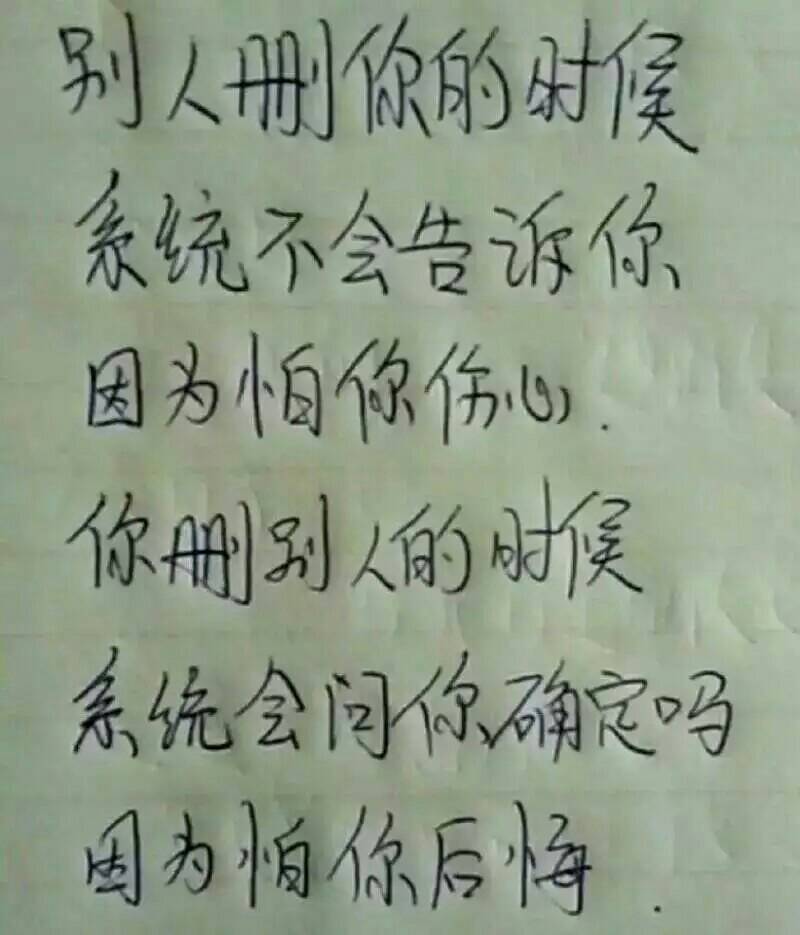 别人删你的时候
系统不会告诉你
因为怕你伤心.
你删别人的时候
系统会问你确定吗
因为怕你后悔.